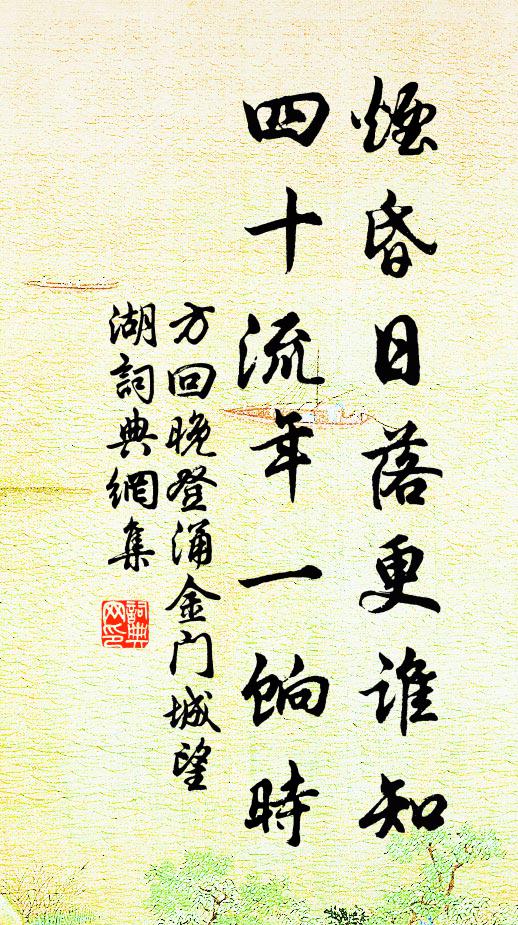 煙昏日落更誰知
四十流年一餉時
方回晚登涌金门城望
湖詞典網集
詞典
网印